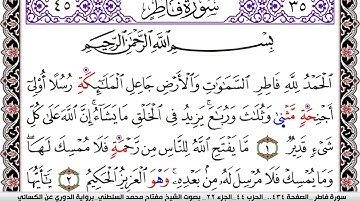 ٤٥ سُورَةُ فَاطِرٍ ٣٥
بِسْمِ اللَّهِ الرَّحْمَٰنِ الرَّحِيمِ
الْحَمْدُ لِلَّهِ فَاطِرِ السَّمَٰوَٰتِ وَالْأَرْضِ جَاعِلِ الْمَلَٰٓئِكَةِ رُسُلًا أُو۟لِىٓ
أَجْنِحَةٍ مَّثْنَىٰ وَثُلَٰثَ وَرُبَٰعَ ۚ يَزِيدُ فِى الْخَلْقِ مَا يَشَآءُ ۚ إِنَّ اللَّهَ عَلَىٰ كُلِّ
شَىْءٍ قَدِيرٌ ١ مَّا يَفْتَحِ اللَّهُ لِلنَّاسِ مِن رَّحْمَةٍ فَلَا مُمْسِكَ لَهَا ۖ
وَمَا يُمْسِكْ فَلَا مُرْسِلَ لَهُۥ مِنۢ بَعْدِهِۦ ۚ وَهْوَ الْعَزِيزُ الْحَكِيمُ ٢ يَٰٓأَيُّهَا
سورة فاطر الصفحة ٤٣٤.. الحزب ٤٤ الجزء ٢٢ بصوت الشيخ مفتاح محمد السلطني. برواية الدوري عن الكسائي